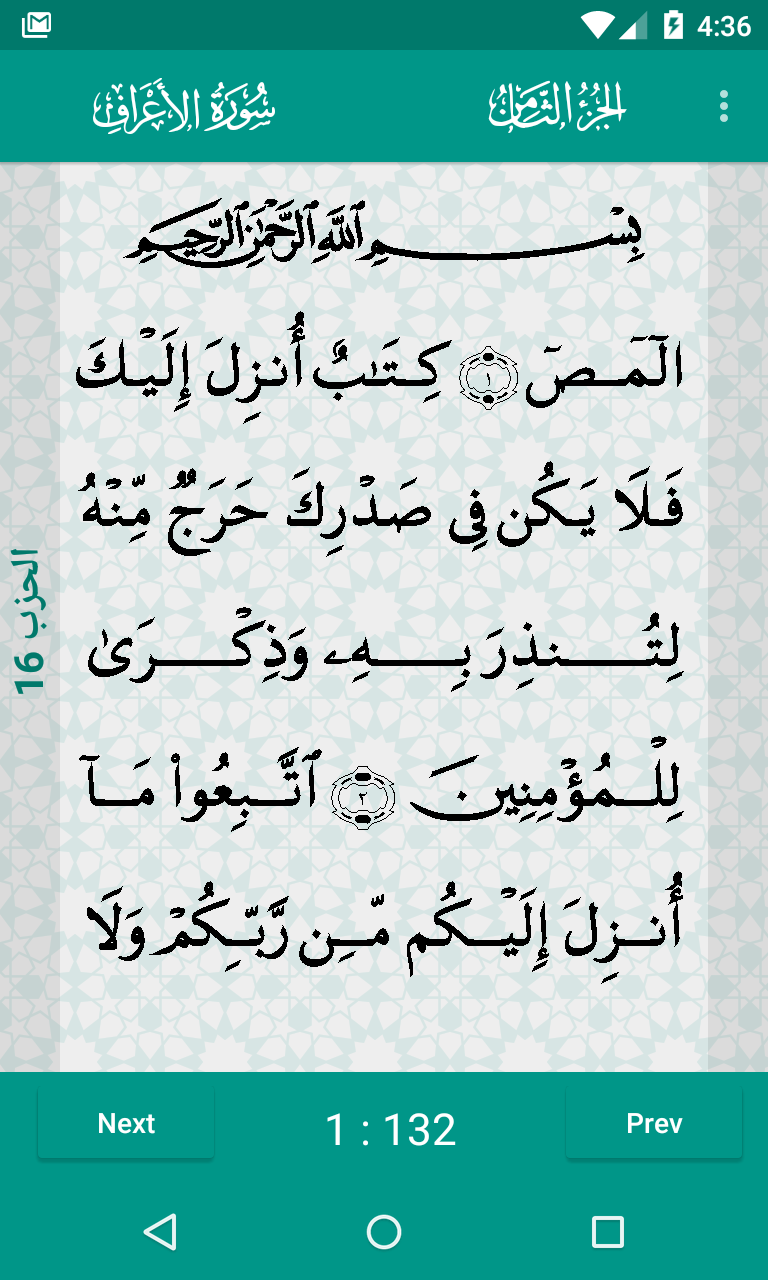 4:36
سُورَةُ الأَعْرَافِ
الجُزْءُ الثَّامِنُ
بِسْمِ ٱللَّهِ ٱلرَّحْمَٰنِ ٱلرَّحِيمِ
الٓمٓصٓ ١ كِتَٰبٌ أُنزِلَ إِلَيْكَ
فَلَا يَكُن فِى صَدْرِكَ حَرَجٌ مِّنْهُ
لِتُنذِرَ بِهِۦ وَذِكْرَىٰ
لِلْمُؤْمِنِينَ ٢ ٱتَّبِعُوا۟ مَآ
أُنزِلَ إِلَيْكُم مِّن رَّبِّكُمْ وَلَا
الحزب 16
Next
1 : 132
Prev